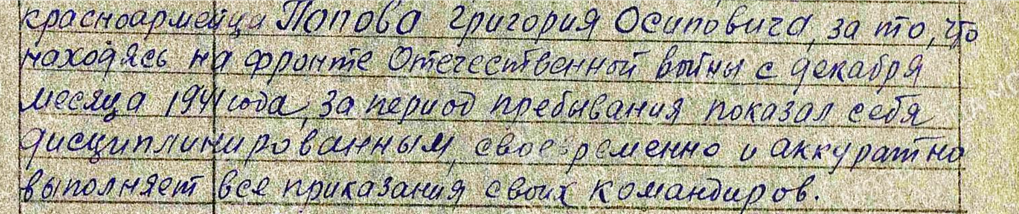 красноармейца Попова Григория Осиповича, за то, что
находясь на фронте Отечественной войны с декабря
месяца 1941 года, за период пребывания показал себя
дисциплинированным, своевременно и аккуратно
выполняет все приказания своих командиров.